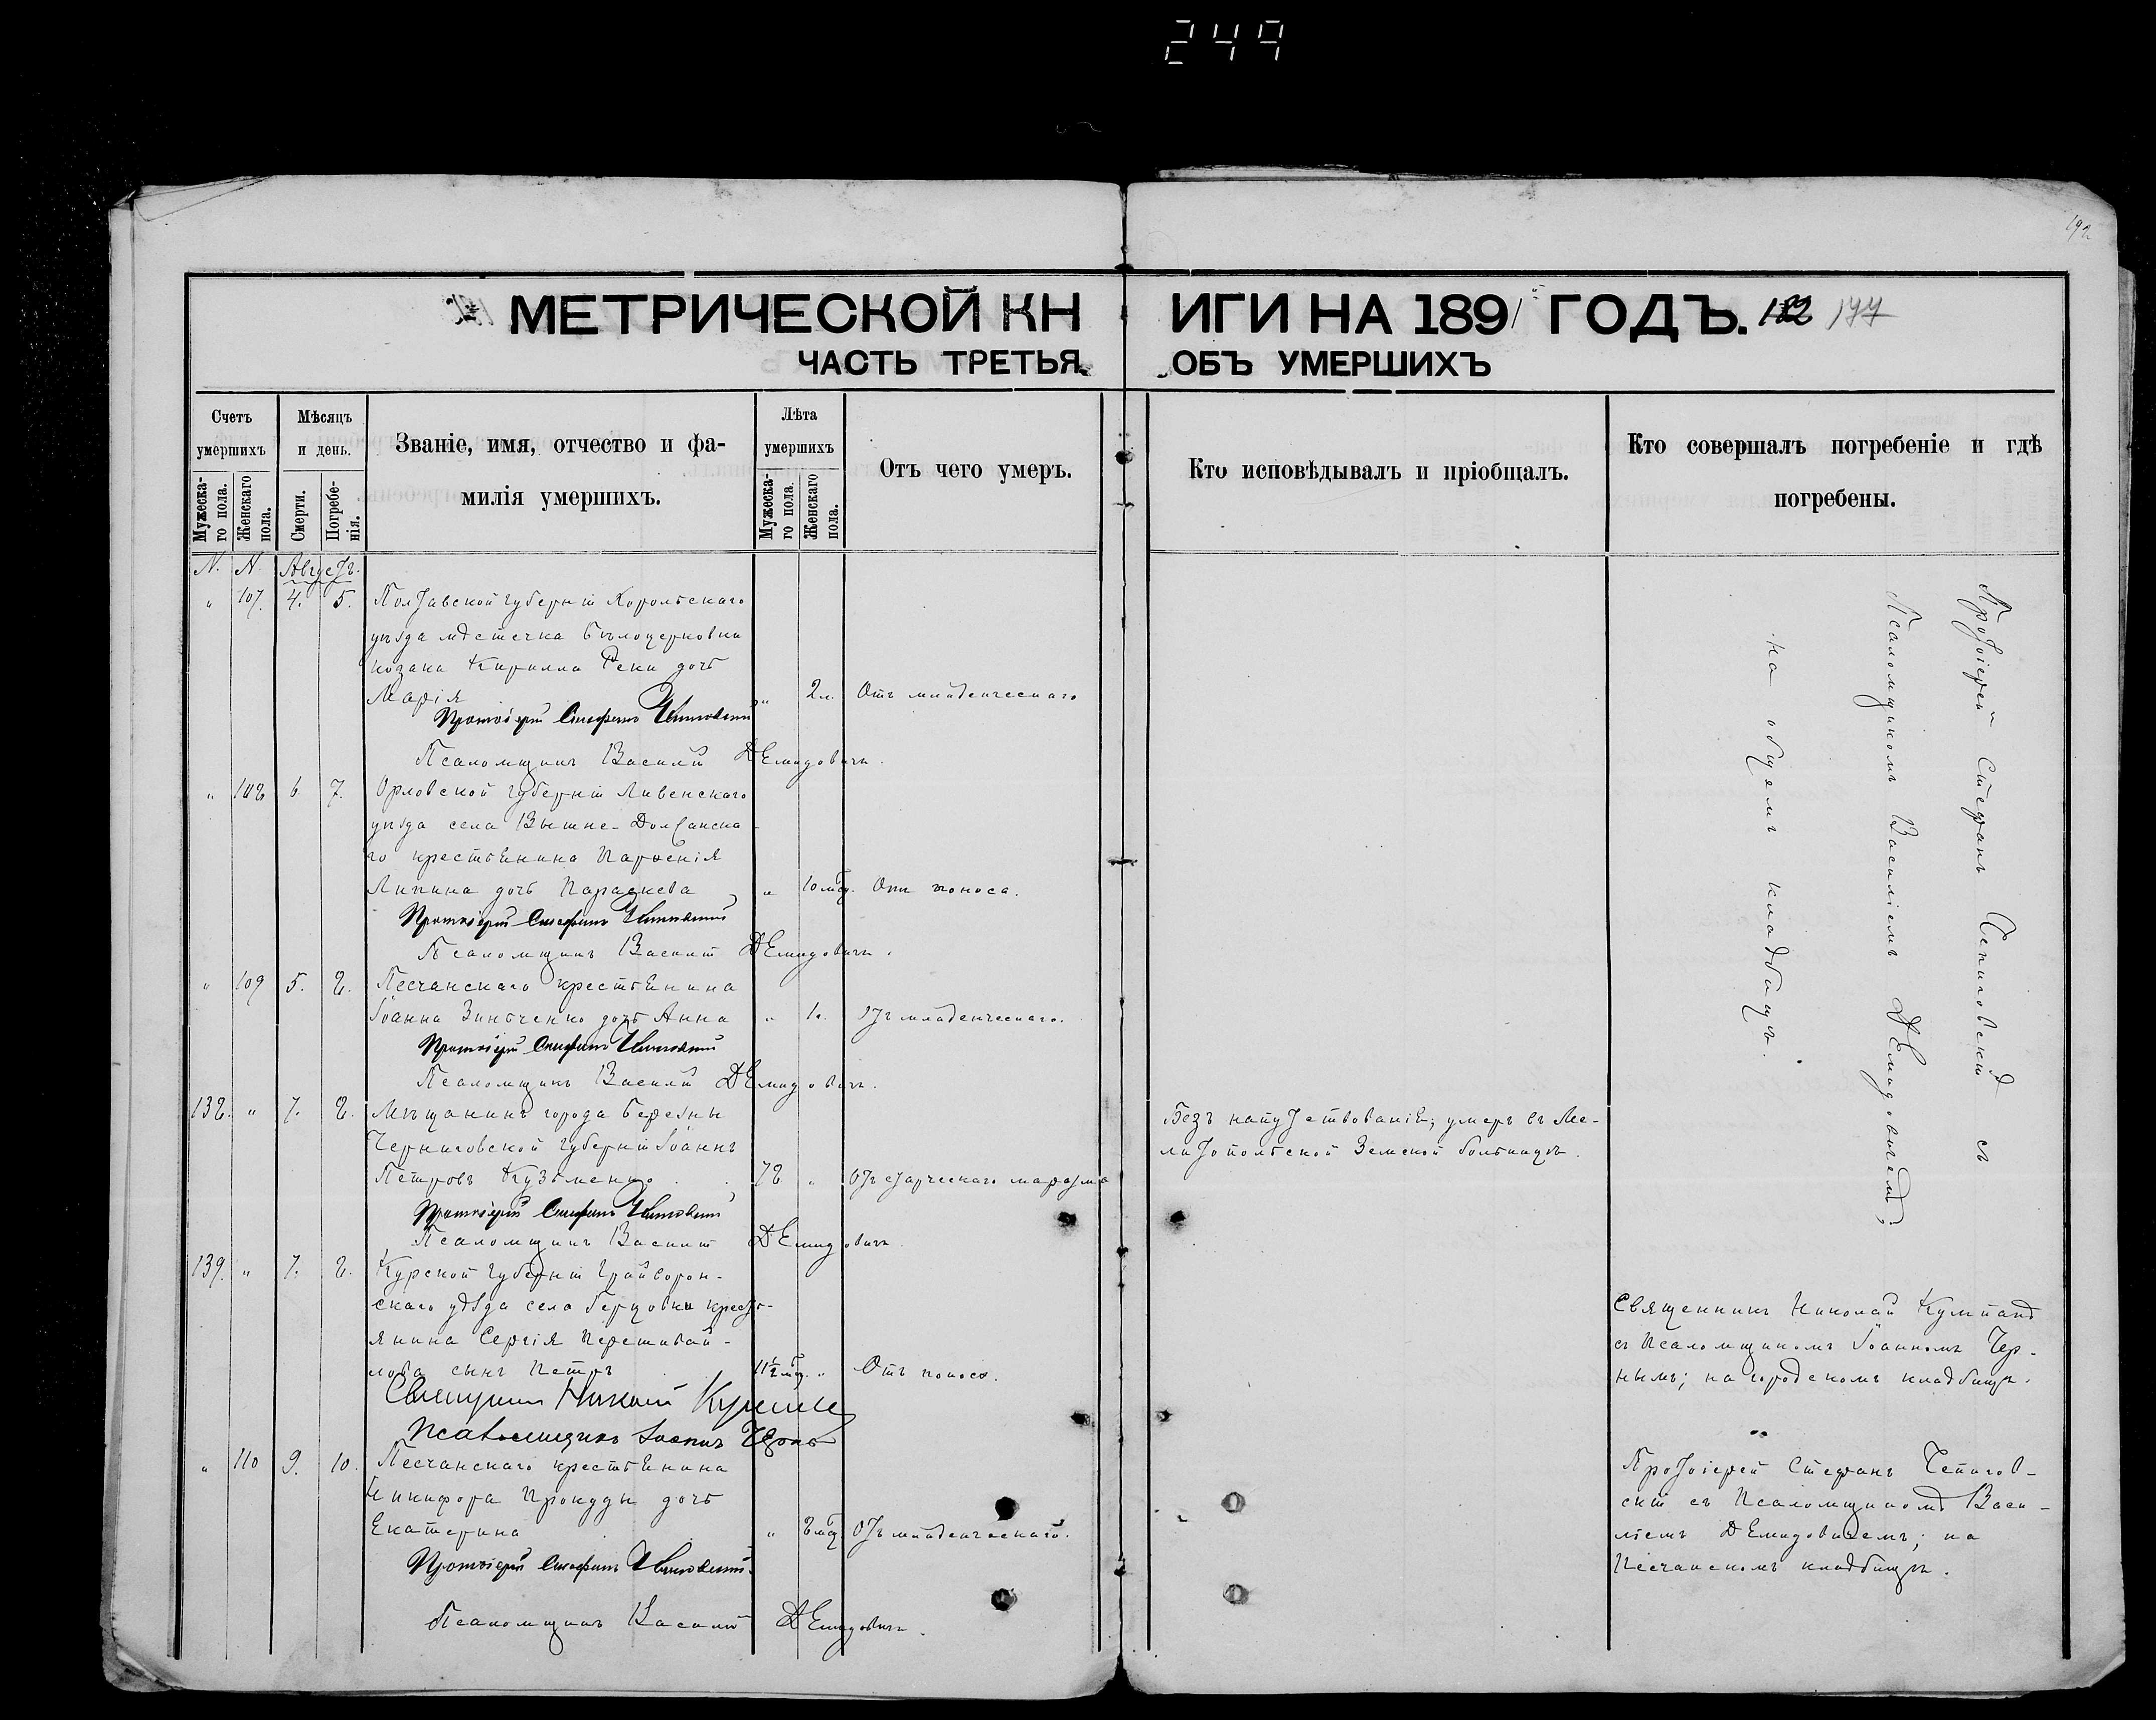 249
192
МЕТРИЧЕСКОЙ КНИГИ НА 1891 ГОДЪ. 182 177
ЧАСТЬ ТРЕТЬЯ ОБЪ УМЕРШИХЪ
Счетъ умершихъ
Мужеска-го пола.
Женскаго пола.
Мѣсяцъ и день.
Смерти.
Погребе-нія.
Званіе, имя, отчество и фа-
милія умершихъ.
Лѣта умершихъ
Мужеска-го пола.
Женскаго пола.
Отъ чего умеръ.
Кто исповѣдывалъ и пріобщалъ.
Кто совершалъ погребеніе и гдѣ
погребены.
N. N. Августъ.
" 107. 4. 5. Полтавской губерніи Хорольскаго
уѣзда мѣстечка Бѣлоцерковки
козака Кирилла Реки дочь
Марія " 2 л. Отъ младенческаго
Протоіерей Стефанъ
Псаломщикъ Василій Демидовичъ.
" 108 6 7. Орловской губерніи Ливенскаго
уѣзда села Вышне-Должанска-
го крестьянина Парѳенія
Липина дочь Параскева " 10 мѣс. Отъ поноса.
Протоіерей Стефанъ
Псаломщикъ Василій Демидовичъ.
" 109 5. 8. Песчанскаго крестьянина
Іоанна Зинченко дочь Анна " 1. Отъ младенческаго.
Протоіерей Стефанъ
Псаломщикъ Василій Демидовичъ.
138. " 7. 8. Мѣщанинъ города Березны
Черниговской губерніи Іоаннъ
Петровъ Кузьменко 78 " Отъ старческаго маразма
Протоіерей Стефанъ
Псаломщикъ Василій Демидовичъ
Безъ напутствованія; умеръ въ Ме-
литопольской Земской больницѣ.
Протоіерей Стефанъ Чепиговскій съ
Псаломщикомъ Василіемъ Демидовичемъ;
на общемъ кладбищѣ.
139. " 7. 8. Курской губерніи Грайворон-
скаго уѣзда села Герцовки кресть-
янина Сергія
сынъ Петръ 11½ мѣс. " Отъ поноса.
Священникъ Николай
Псаломщикъ Іоаннъ
Священникъ Николай
съ Псаломщикомъ Іоанномъ Чер-
нымъ; на городскомъ кладбищѣ.
" 110 9. 10. Песчанскаго крестьянина
Никифора дочь
Екатерина " 8 мѣс. Отъ младенческаго.
Протоіерей Стефанъ
Псаломщикъ Василій Демидовичъ.
Протоіерей Стефанъ Чепигов-
скій съ Псаломщикомъ Васи-
ліемъ Демидовичемъ; на
Песчанскомъ кладбищѣ.